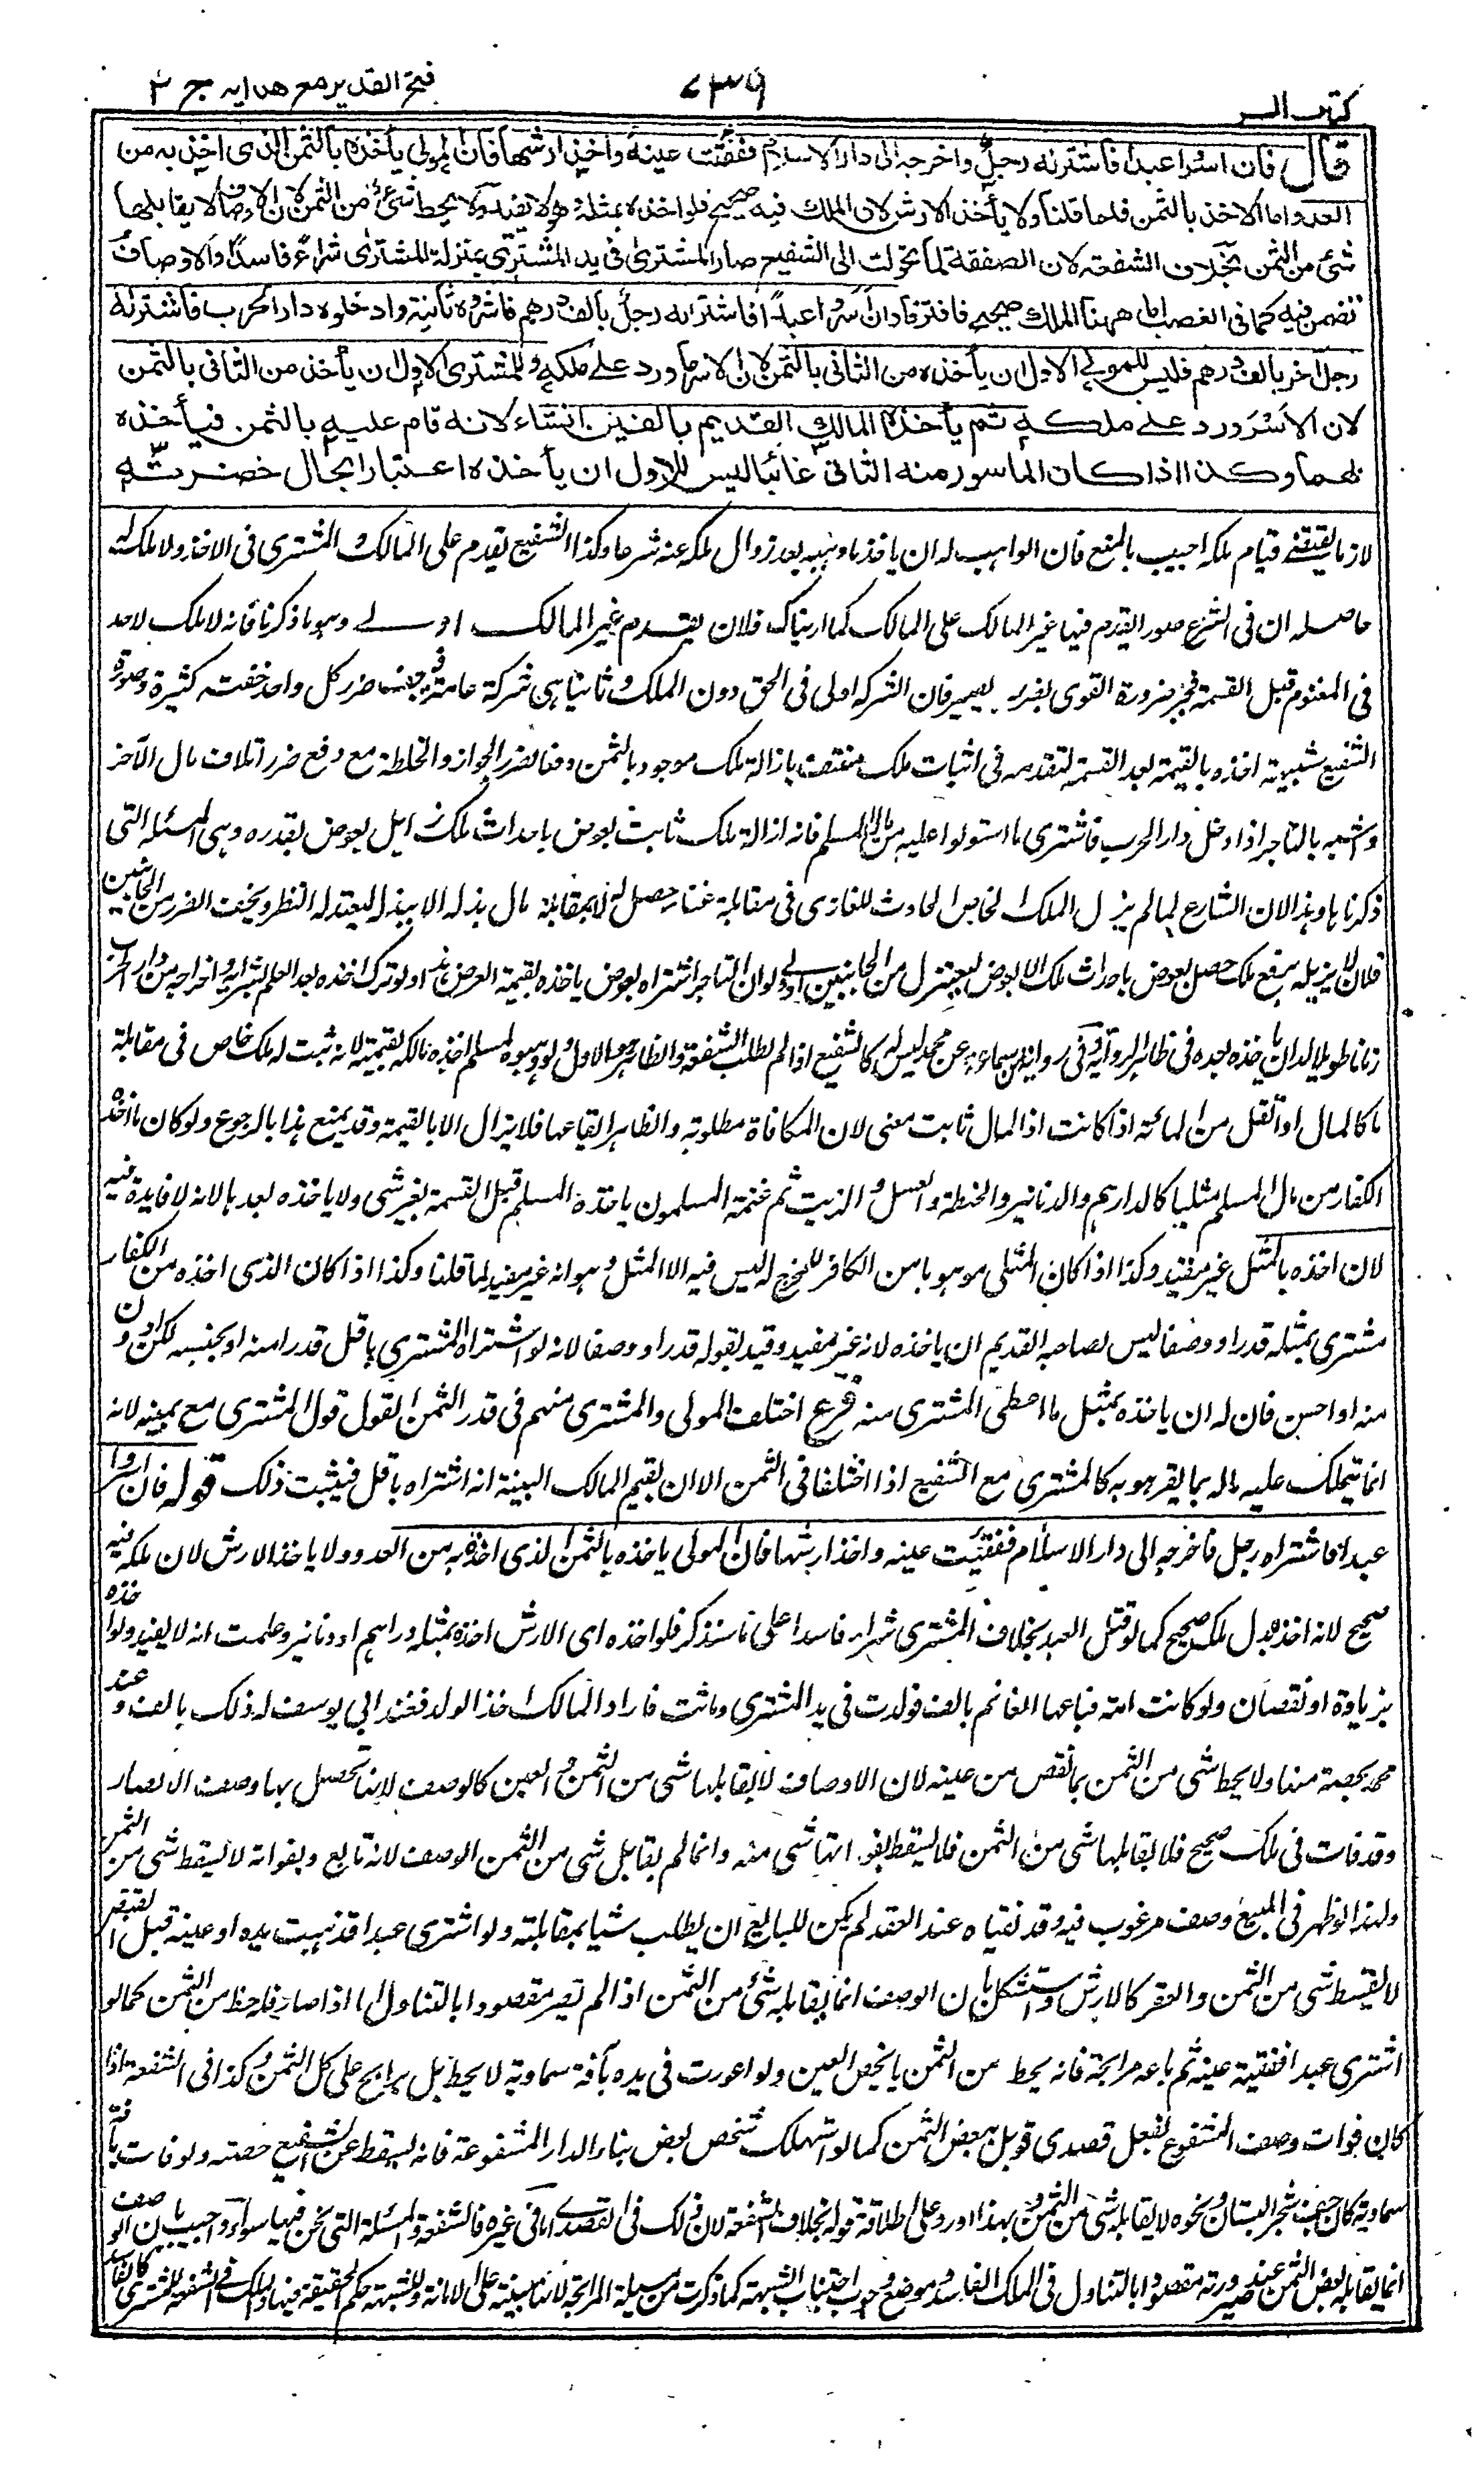 فتح القدير مع هدايه ج ٢
٧٣٩
كتاب السير
قال فان اسروا عبدا فاشتراه رجل واخرجه الى دار الاسلام ففقئت عينه واخذ ارشها فان المولى يأخذه بالثمن الذى اخذ به من
العدو اما الاخذ بالثمن فلما قلنا ولا يأخذ الارش لان الملك فيه صحيح فلو اخذه اخذه بمثله وهو لا يفيد ولا يحط شئ من الثمن لان الاوصاف لا يقابلها
شئ من الثمن بخلاف الشفعة لان الصفقة لما تحولت الى الشفيع صار المشترى فى يد المشترى بمنزلة المشترى شراء فاسدا والاوصاف
تضمن فيه كما فى الغصب اما ههنا الملك صحيح فافترقا وان اسروا عبدا فاشتراه رجل بالف درهم فاسروه ثانية وادخلوه دار الحرب فاشتراه
رجل اخر بالف درهم فليس للمولى الاول ان يأخذه من الثانى بالثمن لان الاسر ما ورد على ملكه وللمشترى الاول ان يأخذ من الثانى بالثمن
لان الاسر ورد على ملكه ثم يأخذه المالك القديم بالفين ان شاء لانه قام عليه بالثمن فيأخذه
بهما وكذا اذا كان الماسور منه الثانى غائبا ليس للاول ان يأخذه اعتبارا بحال حضرته
لازما يقتضى قيام ملكه اجيب بالمنع فان الواهب له ان ياخذ ما وهبه بعد زوال ملكه عنه شرعا وكذا الشفيع يقدم على المالك المشترى فى الاخذ ولا ملك له
حاصله ان فى الشرع صور القدم فيها غير المالك على المالك كما اريناك فلان يقدم غير المالك اولى وهو ما ذكرنا فانه لا ملك لاحد
فى المغنوم قبل القسمة ضرورة القوى بضرر يسير فان الشركة اولى فى الحق دون الملك وثانيا هى شركة عامة ضرر كل واحد خفت كثيرة وصورة
الشفيع شبيهة اخذه بالقيمة بعد القسمة لتقدمه فى اثبات ملك منتف بازالة ملك موجود بالثمن دفعا لضرر الجوار والخلطة مع دفع ضرر اتلاف مال الآخر
واشبه بالتاجر اذا دخل دار الحرب فاشترى ما استولوا عليه من مال المسلم فانه ازالة ملك ثابت بعوض باحداث ملك زايل بعوض بقدره وهى المسئلة التى
ذكرناها وهذا لان الشارع لما لم يزل الملك الخاص الحادث للغازى فى مقابلة غناء حصل له لا بمقابلة مال بذله الا ببذله ليعتدل النظر ويخف الضرر من الجانبين
فلان لا يزيله بدفع ملك حصل بعوض باحداث ملك الا بعوض ليعتدل من الجانبين اولى ولو ان التاجر اشتراه بعوض ياخذه بقيمة العرض ولو ترك اخذه بعد العلم بشرائه واخراجه من دار الحرب
زمانا طويلا له ان ياخذه بعده فى ظاهر الرواية وفى رواية ابن سماعة عن محمد ليس له كالشفيع اذا لم يطلب الشفعة والظاهر هو الاول ولو وهبوه لمسلم اخذه مالكه بقيمته لانه ثبت له ملك خاص فى مقابلة
ما كالمال او اثقل من المائة اذا كانت اذ المال ثابت معنى لان المكافاة مطلوبة والظاهر ايقاعها فلا يزال الا بالقيمة وقد يمنع هذا بالرجوع ولو كان ما اخذه
الكفار من مال المسلم مثليا كالدراهم والدنانير والحنطة والعسل والزيت ثم غنمه المسلمون ياخذه المسلم قبل القسمة بغير شى ولا ياخذه بعدها لانه لا فايدة فيه
لان اخذه بالمثل غير مفيد وكذا اذا كان المثلى موهوبا من الكافر للمخرج له ليس فيه الا المثل وهو انه غير مفيد لما قلنا وكذا اذا كان الذى اخذه من الكفار
مشترى بمثله قدرا ووصفا ليس لصاحبه القديم ان ياخذه لانه غير مفيد وقيد بقوله قدرا ووصفا لانه لو اشتراه المشترى باقل قدرا منه او بجنسه لكن ادون
منه او احسن فان له ان ياخذه بمثل ما اعطى المشترى منه فرع اختلف المولى والمشترى منهم فى قدر الثمن القول قول المشترى مع يمينه لانه
انما يتملك عليه ماله بما يقر هو به كالمشترى مع الشفيع اذا اختلفا فى الثمن الا ان يقيم المالك البينة انه اشتراه باقل فيثبت ذلك قوله فان اسروا
عبدا فاشتراه رجل فاخرجه الى دار الاسلام ففقئت عينه واخذ ارشها فان المولى ياخذه بالثمن الذى اخذه به من العدو ولا ياخذ الارش لان ملكه فيه
صحيح لانه اخذه بدل ملك صحيح كما لو قتل العبد بخلاف المشترى شراء فاسدا على ما سنذكر فلو اخذه اى الارش اخذه بمثله دراهم او دنانير وعلمت انه لا يفيد ولو اخذه
بزيادة او نقصان ولو كانت امة فباعها الغانم بالف فولدت فى يد المشترى وماتت فاراد المالك اخذ الولد فعند ابى يوسف له ذلك بالف وعند
محمد بحصة منها ولا يحط شى من الثمن بما نقص من عينه لان الاوصاف لا يقابلها شى من الثمن والعين كالوصف لانها يحصل بها وصف الابصار
وقد فات فى ملك صحيح فلا يقابلها شى من الثمن فلا يسقط بفواتها شى منه وانما لم يقابل شى من الثمن الوصف لانه تابع وبفواته لا يسقط شى من الثمن
ولهذا لو ظهر فى المبيع وصف مرغوب فيه وقد نفياه عند العقد لم يكن للبائع ان يطلب شيا بمقابلته ولو اشترى عبدا فذهبت يده او عينه قبل القبض
لا يسقط شى من الثمن والعقر كالارش واستشكل بان الوصف انما لا يقابله شئ من الثمن اذا لم يصر مقصودا بالتناول اما اذا صار فله حظ من الثمن كما لو
اشترى عبدا ففقئت عينه ثم باعه مرابحة فانه يحط من الثمن ما يخص العين ولو اعورت فى يده بآفة سماوية لا يحط بل يرابح على كل الثمن وكذا فى الشفعة اذا
كان فوات وصف المشفوع بفعل قصدى قوبل ببعض الثمن كما لو استهلك شخص بعض بناء الدار المشفوعة فانه يسقط عن الشفيع حصته ولو فات بآفة
سماوية كان جف شجر البستان ونحوه لا يقابله شى من الثمن وبهذا اورد على اطلاقه قوله بخلاف الشفعة لان ذلك فى القصدى اما فى غيره فالشفعة والمسئلة التى نحن فيها سواء واجيب بان الوصف
انما يقابله بعض الثمن عند صيرورته مقصودا بالتناول فى الملك الفاسد وموضع وجوب اجتناب الشبهة كما ذكرت من مسئلة المرابحة لانها مبنية على الامانة وللشبهة حكم الحقيقة فيها والملك فى الشفعة للمشترى كالفاسد